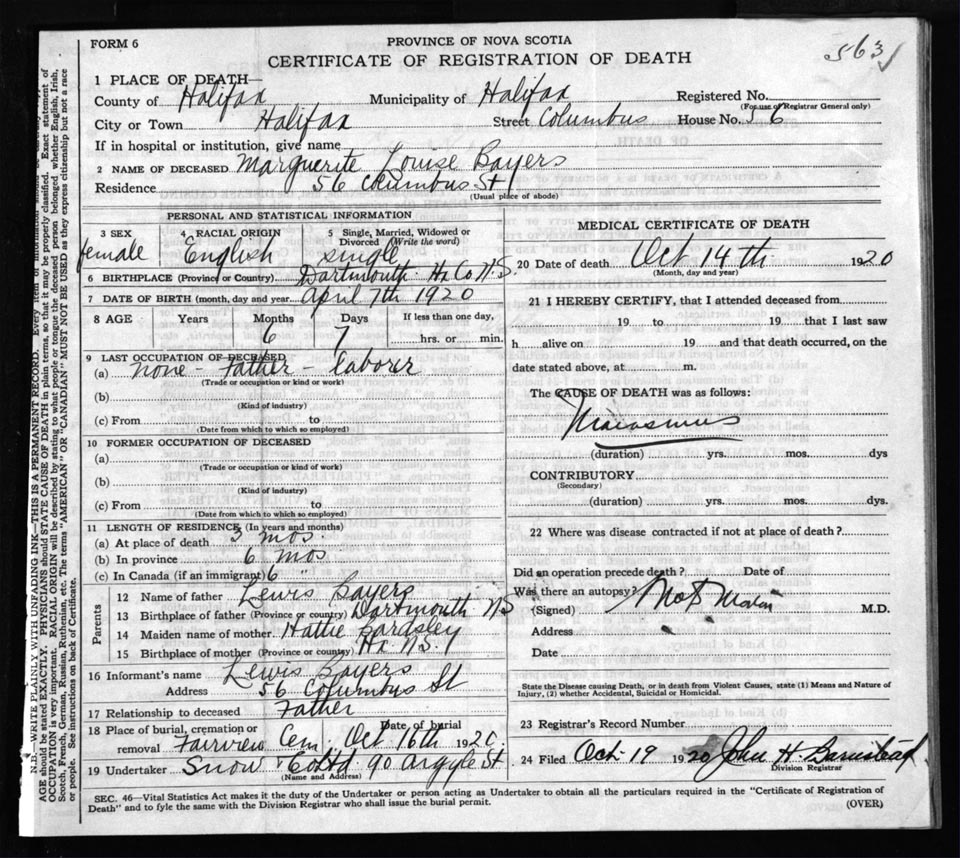 FORM 6
PROVINCE OF NOVA SCOTIA
CERTIFICATE OF REGISTRATION OF DEATH
563
1 PLACE OF DEATH—
County of Halifax Municipality of Halifax Registered No.
(For use of Registrar General only)
City or Town Halifax Street Columbus House No. 56
If in hospital or institution, give name
2 NAME OF DECEASED Marguerite Louise Bayers
Residence 56 Columbus St
(Usual place of abode)
PERSONAL AND STATISTICAL INFORMATION
3 SEX 4 RACIAL ORIGIN 5 Single, Married, Widowed or Divorced (Write the word)
female English single
6 BIRTHPLACE (Province or Country) Dartmouth Hx Co N.S.
7 DATE OF BIRTH (month, day and year) April 7th 1920
8 AGE Years Months Days If less than one day,
6 7 hrs. or min.
9 LAST OCCUPATION OF DECEASED
(a) none - Father - laborer
(Trade or occupation or kind or work)
(b)
(Kind of industry)
(c) From to
(Date from which to which so employed)
10 FORMER OCCUPATION OF DECEASED
(a)
(Trade or occupation or kind or work)
(b)
(Kind of industry)
(c) From to
(Date from which to which so employed)
11 LENGTH OF RESIDENCE (In years and months)
(a) At place of death 3 mos.
(b) In province 6 mos
(c) In Canada (if an immigrant) 6 "
Parents
12 Name of father Lewis Bayers
13 Birthplace of father (Province or country) Dartmouth NS
14 Maiden name of mother Hattie Bardsley
15 Birthplace of mother (Province or country) Hx. N.S.
16 Informant's name Lewis Bayers
Address 56 Columbus St
17 Relationship to deceased Father
18 Place of burial, cremation or removal Fairview Cem. Date of burial Oct 16th 1920
19 Undertaker Snow & Co Ltd 90 Argyle St
(Name and Address)
MEDICAL CERTIFICATE OF DEATH
20 Date of death Oct 14th 1920
(Month, day and year)
21 I HEREBY CERTIFY, that I attended deceased from
19 to 19 that I last saw
h alive on 19 and that death occurred, on the
date stated above, at m.
The CAUSE OF DEATH was as follows:
Marasmus
(duration) yrs. mos. dys
CONTRIBUTORY
(Secondary)
(duration) yrs. mos. dys.
22 Where was disease contracted if not at place of death?
Did an operation precede death? Date of
Was there an autopsy?
(Signed) M.D.
Address
Date
State the Disease causing Death, or in death from Violent Causes, state (1) Means and Nature of
Injury, (2) whether Accidental, Suicidal or Homicidal.
23 Registrar's Record Number
24 Filed Oct 19 1920 John H. Barnstead
Division Registrar
SEC. 46—Vital Statistics Act makes it the duty of the Undertaker or person acting as Undertaker to obtain all the particulars required in the "Certificate of Registration of
Death" and to fyle the same with the Division Registrar who shall issue the burial permit.
(OVER)
N.B.—WRITE PLAINLY WITH UNFADING INK—THIS IS A PERMANENT RECORD. Every item of information should
AGE should be stated EXACTLY. PHYSICIANS should STATE CAUSE OF DEATH in plain terms, so that it may be properly classified. Exact statement of
OCCUPATION is very important. RACIAL ORIGIN will be described by stating to what people or tongue the deceased person belonged whether English, Irish,
Scotch, French, German, Russian, Ruthenian, etc. The terms "AMERICAN" OR "CANADIAN" MUST NOT BE USED as they express citizenship but not a race
or people. See instructions on back of Certificate.